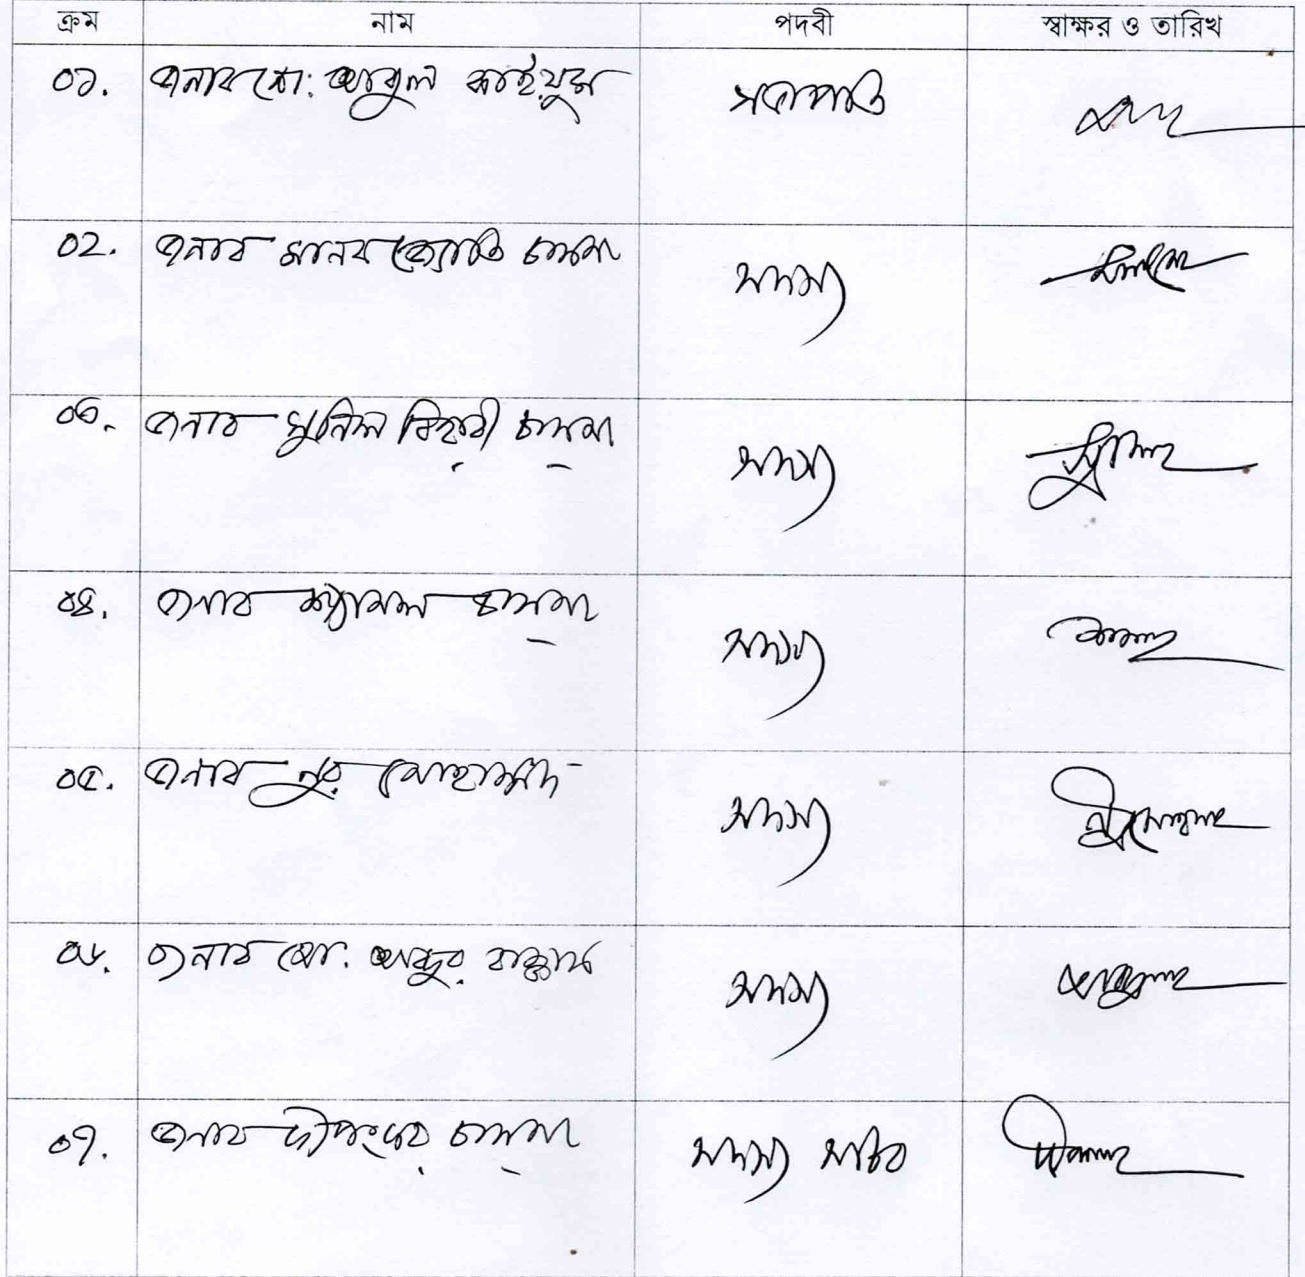 ক্রম নাম পদবী স্বাক্ষর ও তারিখ
০১. জনাব মো: আবুল কাইয়ুম সভাপতি
০২. জনাব মানব জ্যোতি চাকমা সদস্য
০৩. জনাব সুনিল বিহারী চাকমা সদস্য
০৪. জনাব শ্যামল চাকমা সদস্য
০৫. জনাব নুর মোহাম্মদ সদস্য
০৬. জনাব মো. আব্দুর রাজ্জাক সদস্য
০৭. জনাব দীপংকর চাকমা সদস্য সচিব